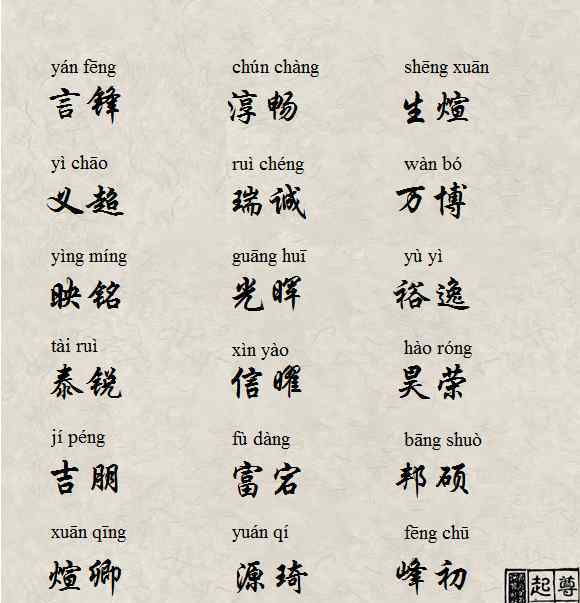 yán fēng chún chàng shēng xuān
言锋 淳畅 生煊
yì chāo ruì chéng wàn bó
义超 瑞诚 万博
yìng míng guāng huī yù yì
映铭 光晖 裕逸
tài ruì xìn yào hào róng
泰锐 信曜 昊荣
jí péng fù dàng bāng shuò
吉朋 富宕 邦硕
xuān qīng yuán qí fēng chū
煊卿 源琦 峰初
起尊